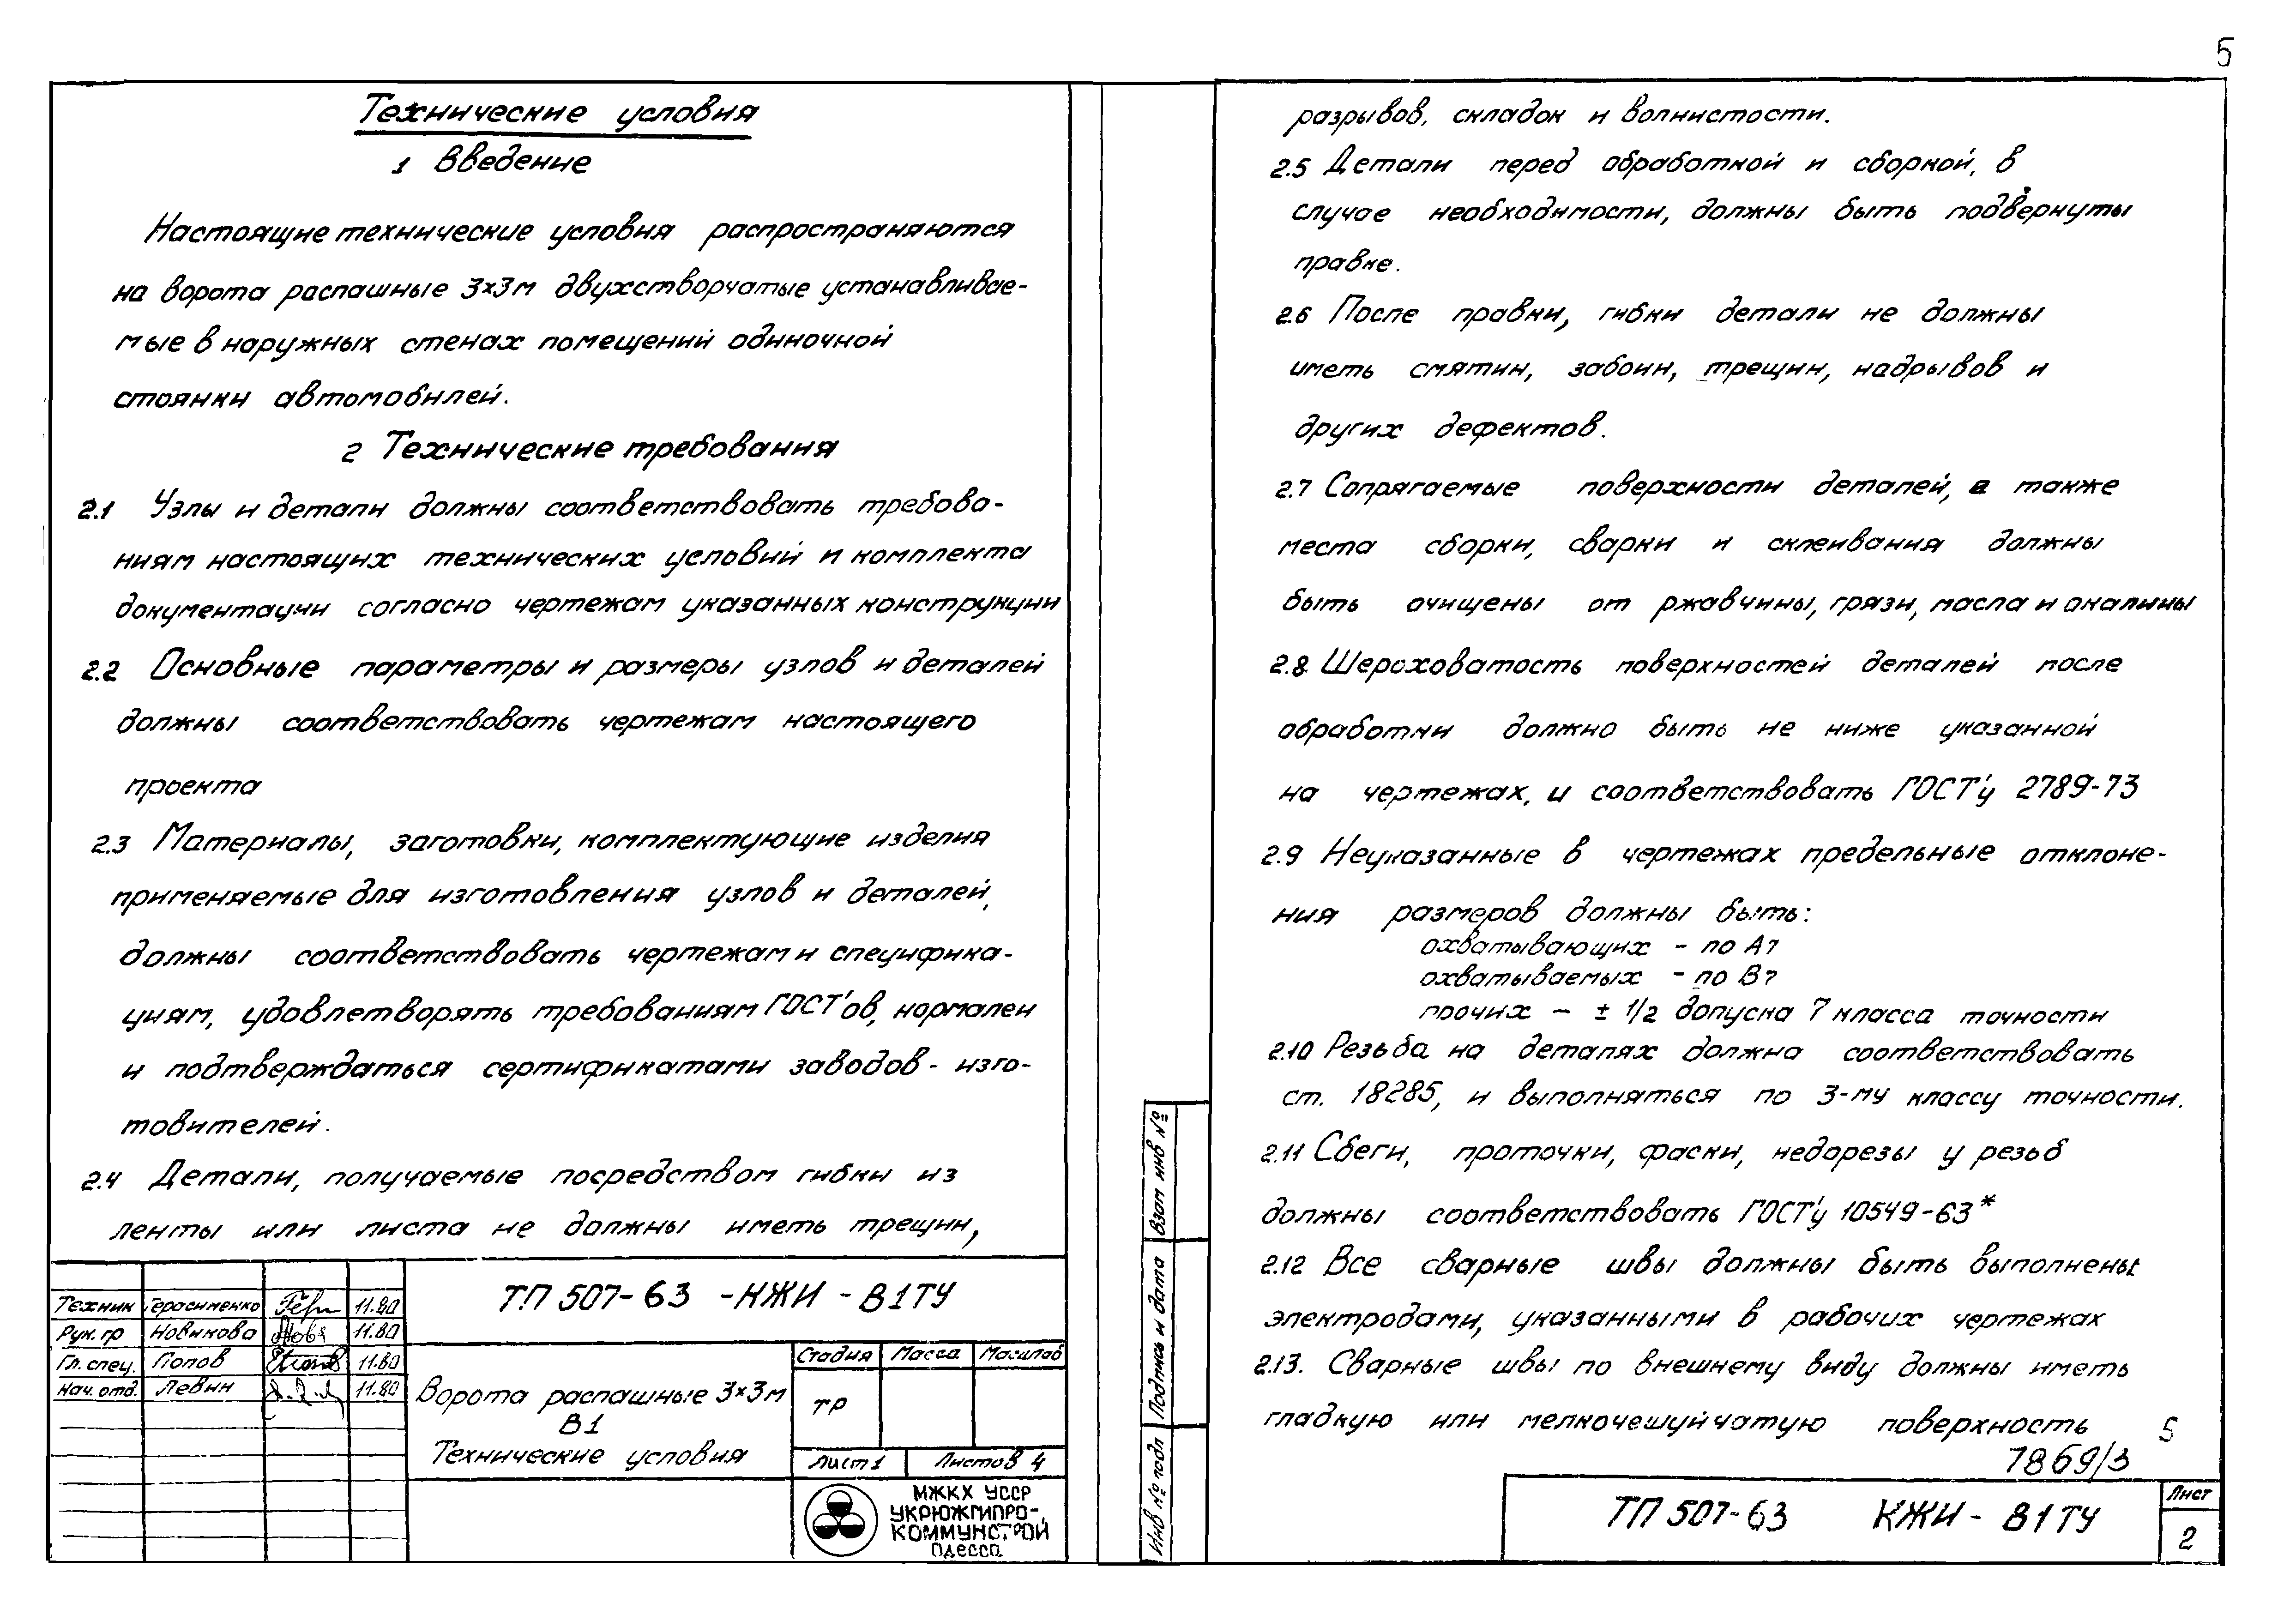 5
Технические условия
1 Введение
Настоящие технические условия распространяются
на ворота распашные 3×3м двухстворчатые устанавливае-
мые в наружных стенах помещений одиночной
стоянки автомобилей.
2 Технические требования
2.1 Узлы и детали должны соответствовать требова-
ниям настоящих технических условий и комплекта
документации согласно чертежам указанных конструкции
2.2 Основные параметры и размеры узлов и деталей
должны соответствовать чертежам настоящего
проекта
2.3 Материалы, заготовки, комплектующие изделия
применяемые для изготовления узлов и деталей,
должны соответствовать чертежам и специфика-
циям, удовлетворять требованиям ГОСТ'ов, нормален
и подтверждаться сертификатами заводов - изго-
товителей.
2.4 Детали, получаемые посредством гибки из
ленты или листа не должны иметь трещин,
Техник Герасименко 11.80
Рук. гр Новикова 11.80
Гл. спец. Попов 11.80
Нач. отд. Левин 11.80
ТП 507-63 -КЖИ - В1ТУ
Ворота распашные 3×3м
В1
Технические условия
Стадия Масса Масштаб
ТР
Лист 1 Листов 4
МЖКХ УССР
УКРЮЖГИПРО-
КОММУНСТРОЙ
Одесса
разрывов, складок и волнистости.
2.5 Детали перед обработкой и сборкой, в
случае необходимости, должны быть подвернуты
правке.
2.6 После правки, гибки детали не должны
иметь смятин, забоин, трещин, надрывов и
других дефектов.
2.7 Сопрягаемые поверхности деталей, а также
места сборки, сварки и склеивания должны
быть очищены от ржавчины, грязи, масла и окалины
2.8 Шероховатость поверхностей деталей после
обработки должно быть не ниже указанной
на чертежах, и соответствовать ГОСТ'у 2789-73
2.9 Неуказанные в чертежах предельные отклоне-
ния размеров должны быть:
охватывающих - по А7
охватываемых - по В7
прочих - ± 1/2 допуска 7 класса точности
2.10 Резьба на деталях должна соответствовать
ст. 18285, и выполняться по 3-му классу точности.
2.11 Сбеги, проточки, фаски, недорезы у резьб
должны соответствовать ГОСТ'у 10549-63*
2.12 Все сварные швы должны быть выполнены
электродами, указанными в рабочих чертежах
2.13. Сварные швы по внешнему виду должны иметь
гладкую или мелкочешуйчатую поверхность
5
7869/3
Взам инв №
Подпись и дата
Инв № подл
ТП 507-63 КЖИ - В1ТУ
Лист
2